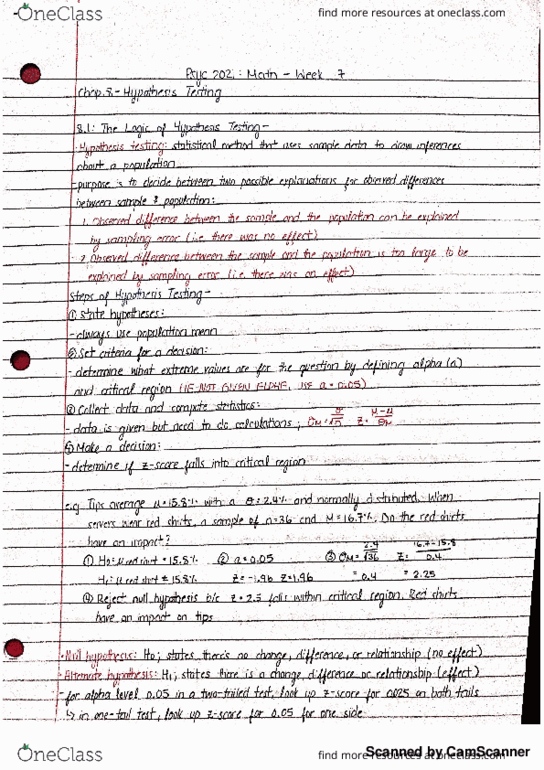 OneClass
find more resources at oneclass.com
Psyc 202: Math - Week 7
Chap. 8 - Hypothesis Testing
8.1: The Logic of Hypothesis Testing -
Hypothesis testing: statistical method that uses sample data to draw inferences
about a population
- purpose is to decide between two possible explanations for observed differences
between sample & population:
1. Observed difference between the sample and the population can be explained
by sampling error (i.e. there was no effect)
2. Observed difference between the sample and the population is too large to be
explained by sampling error (i.e. there was an effect)
Steps of Hypothesis Testing -
① State hypotheses:
- always use population mean
② Set criteria for a decision:
- determine what extreme values are for the question by defining alpha (α)
and critical region (IF NOT GIVEN ALPHA, USE α = 0.05)
③ Collect data and compute statistics:
- data is given but need to do calculations; σM = σ/√n z = M-μ/σM
④ Make a decision:
- determine if z-score falls into critical region
e.g. Tips average μ = 15.8% with a σ = 2.4% and normally distributed. When
servers wear red shirts, a sample of n = 36 and M = 16.7%. Do the red shirts
have an impact?
① H0: μ red shirt = 15.8% ② α = 0.05 ③ σM = 2.4/√36 z = 16.7-15.8/0.4
H1: μ red shirt ≠ 15.8% z = -1.96 z = 1.96 = 0.4 = 2.25
④ Reject null hypothesis b/c z = 2.5 falls within critical region. Red shirts
have an impact on tips
- Null hypothesis: H0; states there's no change, difference, or relationship (no effect)
- Alternate hypothesis: H1; states there is a change, difference or relationship (effect)
- for alpha level 0.05 in a two-tailed test, look up z-score for 0.025 on both tails
↳ in one-tail test, look up z-score for 0.05 for one side
OneClass
find more resources at oneclass.com
Scanned by CamScanner